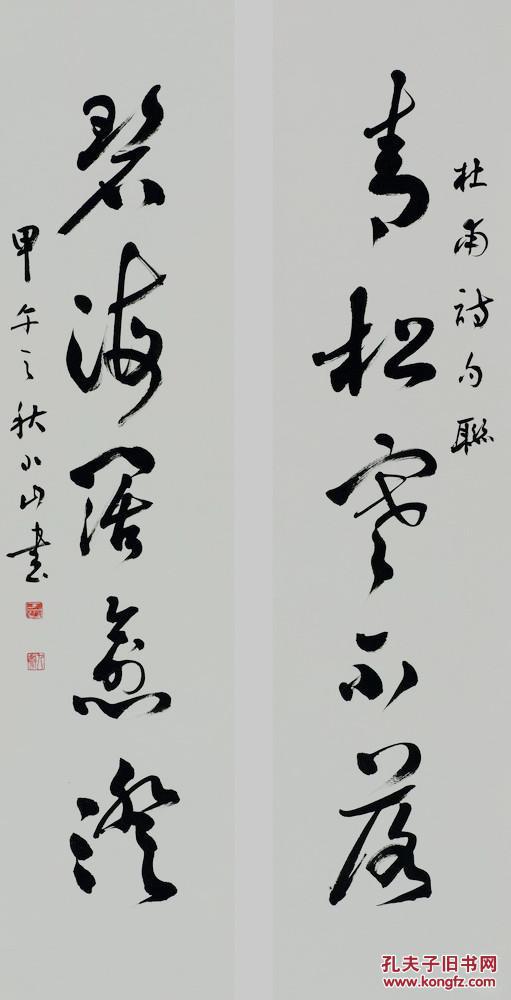 杜甫詩句聯
青松寒不落
碧海闊愈澄
甲午之秋小山書
孔夫子旧书网
www.kongfz.com